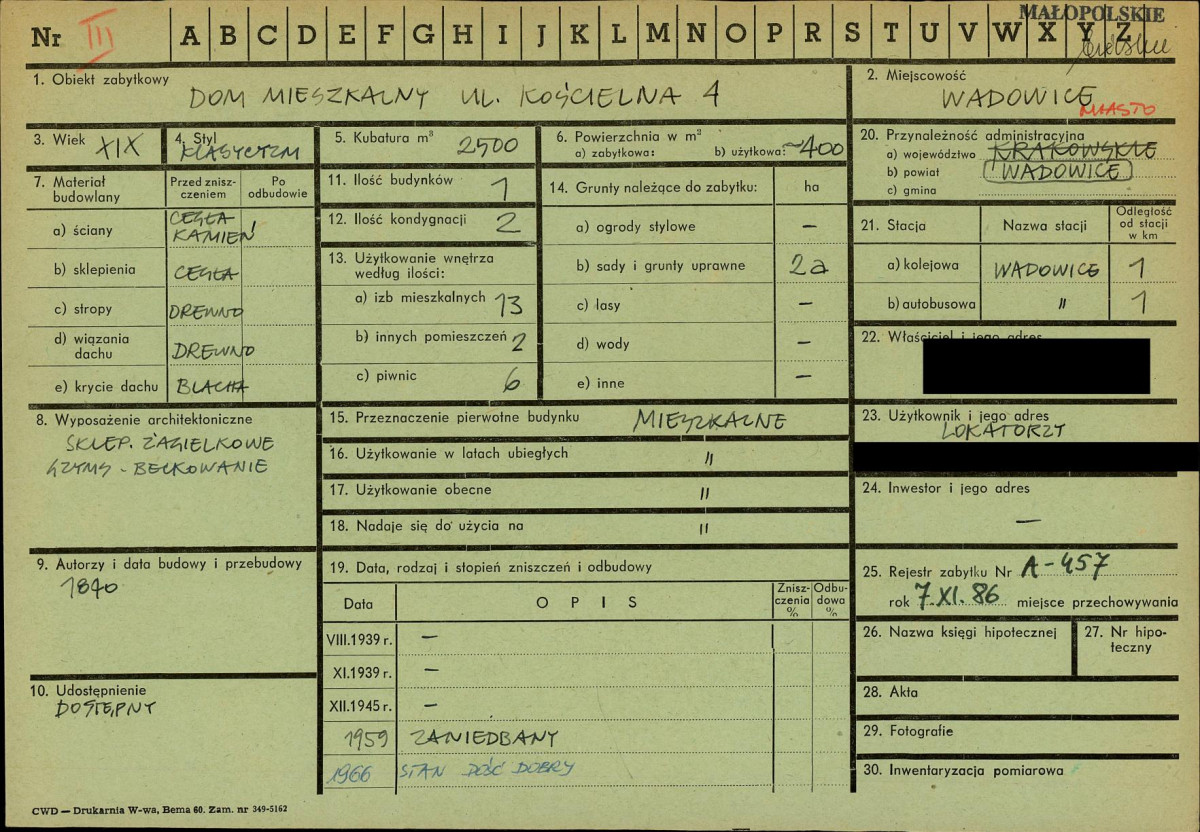 MAŁOPOLSKIE
Nr III A B C D E F G H I J K L M N O P R S T U V W X Y Z
1. Obiekt zabytkowy
DOM MIESZKALNY UL. KOŚCIELNA 4
2. Miejscowość
WADOWICE
MIASTO
3. Wiek XIX
4. Styl
KLASYCYZM
5. Kubatura m³ 2500
6. Powierzchnia w m²
a) zabytkowa: b) użytkowa: ~400
20. Przynależność administracyjna
a) województwo KRAKOWSKIE
b) powiat WADOWICE
c) gmina
7. Materiał budowlany
Przed znisz-
czeniem
Po
odbudowie
a) ściany CEGŁA
KAMIEŃ
b) sklepienia CEGŁA
c) stropy DREWNO
d) wiązania
dachu DREWNO
e) krycie dachu BLACHA
11. Ilość budynków 1
12. Ilość kondygnacji 2
13. Użytkowanie wnętrza
według ilości:
a) izb mieszkalnych 13
b) innych pomieszczeń 2
c) piwnic 6
14. Grunty należące do zabytku: ha
a) ogrody stylowe —
b) sady i grunty uprawne 2a
c) lasy —
d) wody —
e) inne —
21. Stacja Nazwa stacji Odległość
od stacji
w km
a) kolejowa WADOWICE 1
b) autobusowa " 1
22. Właściciel i jego adres
8. Wyposażenie architektoniczne
SKLEP. ŻAGIELKOWE
GZYMS - BELKOWANIE
15. Przeznaczenie pierwotne budynku MIESZKALNE
16. Użytkowanie w latach ubiegłych "
17. Użytkowanie obecne "
18. Nadaje się do użycia na "
23. Użytkownik i jego adres
LOKATORZY
24. Inwestor i jego adres
—
9. Autorzy i data budowy i przebudowy
1840
19. Data, rodzaj i stopień zniszczeń i odbudowy
Data O P I S Znisz-
czenia
% Odbu-
dowa
%
VIII.1939 r. —
XI.1939 r. —
XII.1945 r. —
1959 ZANIEDBANY
1966 STAN DOŚĆ DOBRY
25. Rejestr zabytku Nr A-457
rok 7.XI.86 miejsce przechowywania
26. Nazwa księgi hipotecznej
27. Nr hipo-
teczny
10. Udostępnienie
DOSTĘPNY
28. Akta
29. Fotografie
30. Inwentaryzacja pomiarowa
CWD — Drukarnia W-wa, Bema 60. Zam. nr 349-5162